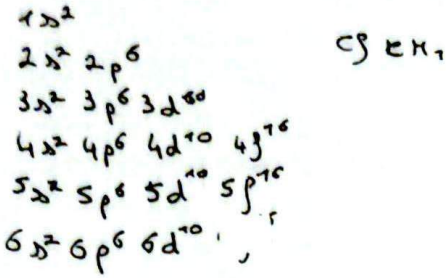 1s²
2s² 2p⁶
3s² 3p⁶ 3d¹⁰
4s² 4p⁶ 4d¹⁰ 4f¹⁶
5s² 5p⁶ 5d¹⁰ 5f¹⁶
6s² 6p⁶ 6d¹⁰